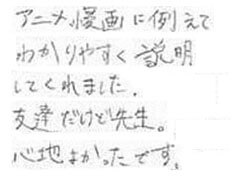 アニメ漫画に例えて
わかりやすく説明
してくれました.
友達だけど先生。
心地よかったです.